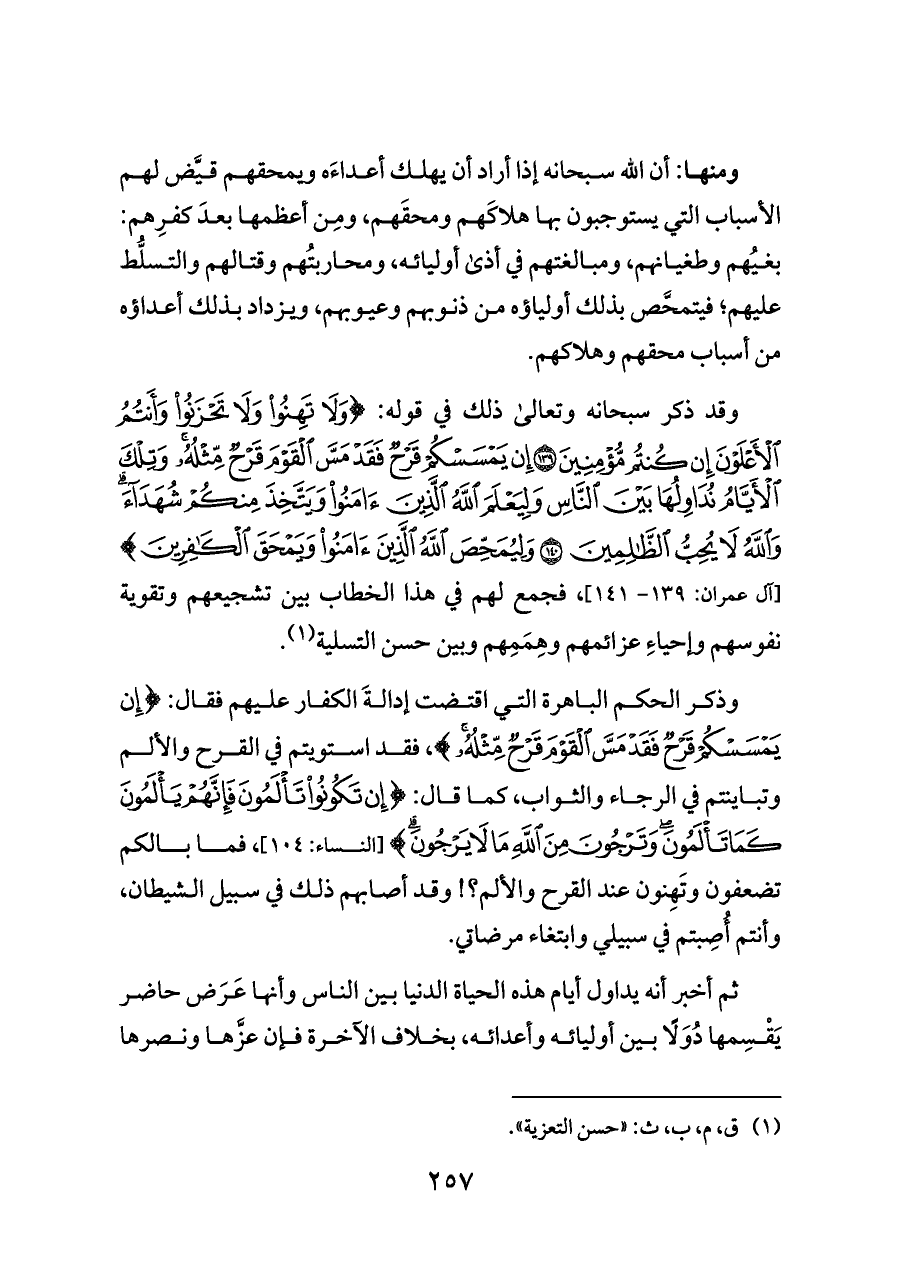 ومنها: أن الله سبحانه إذا أراد أن يهلك أعداءَه ويمحقهم قيَّض لهم
الأسباب التي يستوجبون بها هلاكَهم ومحقَهم، ومِن أعظمها بعدَ كفرِهم:
بغيُهم وطغيانهم، ومبالغتهم في أذىٰ أوليائه، ومحاربتُهم وقتالهم والتسلُّط
عليهم؛ فيتمحَّص بذلك أولياؤه من ذنوبهم وعيوبهم، ويزداد بذلك أعداؤه
من أسباب محقهم وهلاكهم.
وقد ذكر سبحانه وتعالىٰ ذلك في قوله: ﴿وَلَا تَهِنُوا۟ وَلَا تَحْزَنُوا۟ وَأَنتُمُ
ٱلْأَعْلَوْنَ إِن كُنتُم مُّؤْمِنِينَ ١٣٩ إِن يَمْسَسْكُمْ قَرْحٌ فَقَدْ مَسَّ ٱلْقَوْمَ قَرْحٌ مِّثْلُهُۥ ۚ وَتِلْكَ
ٱلْأَيَّامُ نُدَاوِلُهَا بَيْنَ ٱلنَّاسِ وَلِيَعْلَمَ ٱللَّهُ ٱلَّذِينَ ءَامَنُوا۟ وَيَتَّخِذَ مِنكُمْ شُهَدَآءَ ۗ
وَٱللَّهُ لَا يُحِبُّ ٱلظَّٰلِمِينَ ١٤٠ وَلِيُمَحِّصَ ٱللَّهُ ٱلَّذِينَ ءَامَنُوا۟ وَيَمْحَقَ ٱلْكَٰفِرِينَ﴾
[آل عمران: ١٣٩- ١٤١]، فجمع لهم في هذا الخطاب بين تشجيعهم وتقوية
نفوسهم وإحياءِ عزائمهم وهِمَمِهم وبين حسن التسلية(١).
وذكر الحكم الباهرة التي اقتضت إدالةَ الكفار عليهم فقال: ﴿إِن
يَمْسَسْكُمْ قَرْحٌ فَقَدْ مَسَّ ٱلْقَوْمَ قَرْحٌ مِّثْلُهُۥ ۚ﴾، فقد استويتم في القرح والألم
وتباينتم في الرجاء والثواب، كما قال: ﴿إِن تَكُونُوا۟ تَأْلَمُونَ فَإِنَّهُمْ يَأْلَمُونَ
كَمَا تَأْلَمُونَ ۖ وَتَرْجُونَ مِنَ ٱللَّهِ مَا لَا يَرْجُونَ ۗ﴾ [النساء: ١٠٤]، فما بالكم
تضعفون وتَهِنون عند القرح والألم؟! وقد أصابهم ذلك في سبيل الشيطان،
وأنتم أُصِبتم في سبيلي وابتغاء مرضاتي.
ثم أخبر أنه يداول أيام هذه الحياة الدنيا بين الناس وأنها عَرَض حاضر
يَقْسِمها دُوَلًا بين أوليائه وأعدائه، بخلاف الآخرة فإن عزَّها ونصرها
(١) ق، م، ب، ث: «حسن التعزية».
٢٥٧